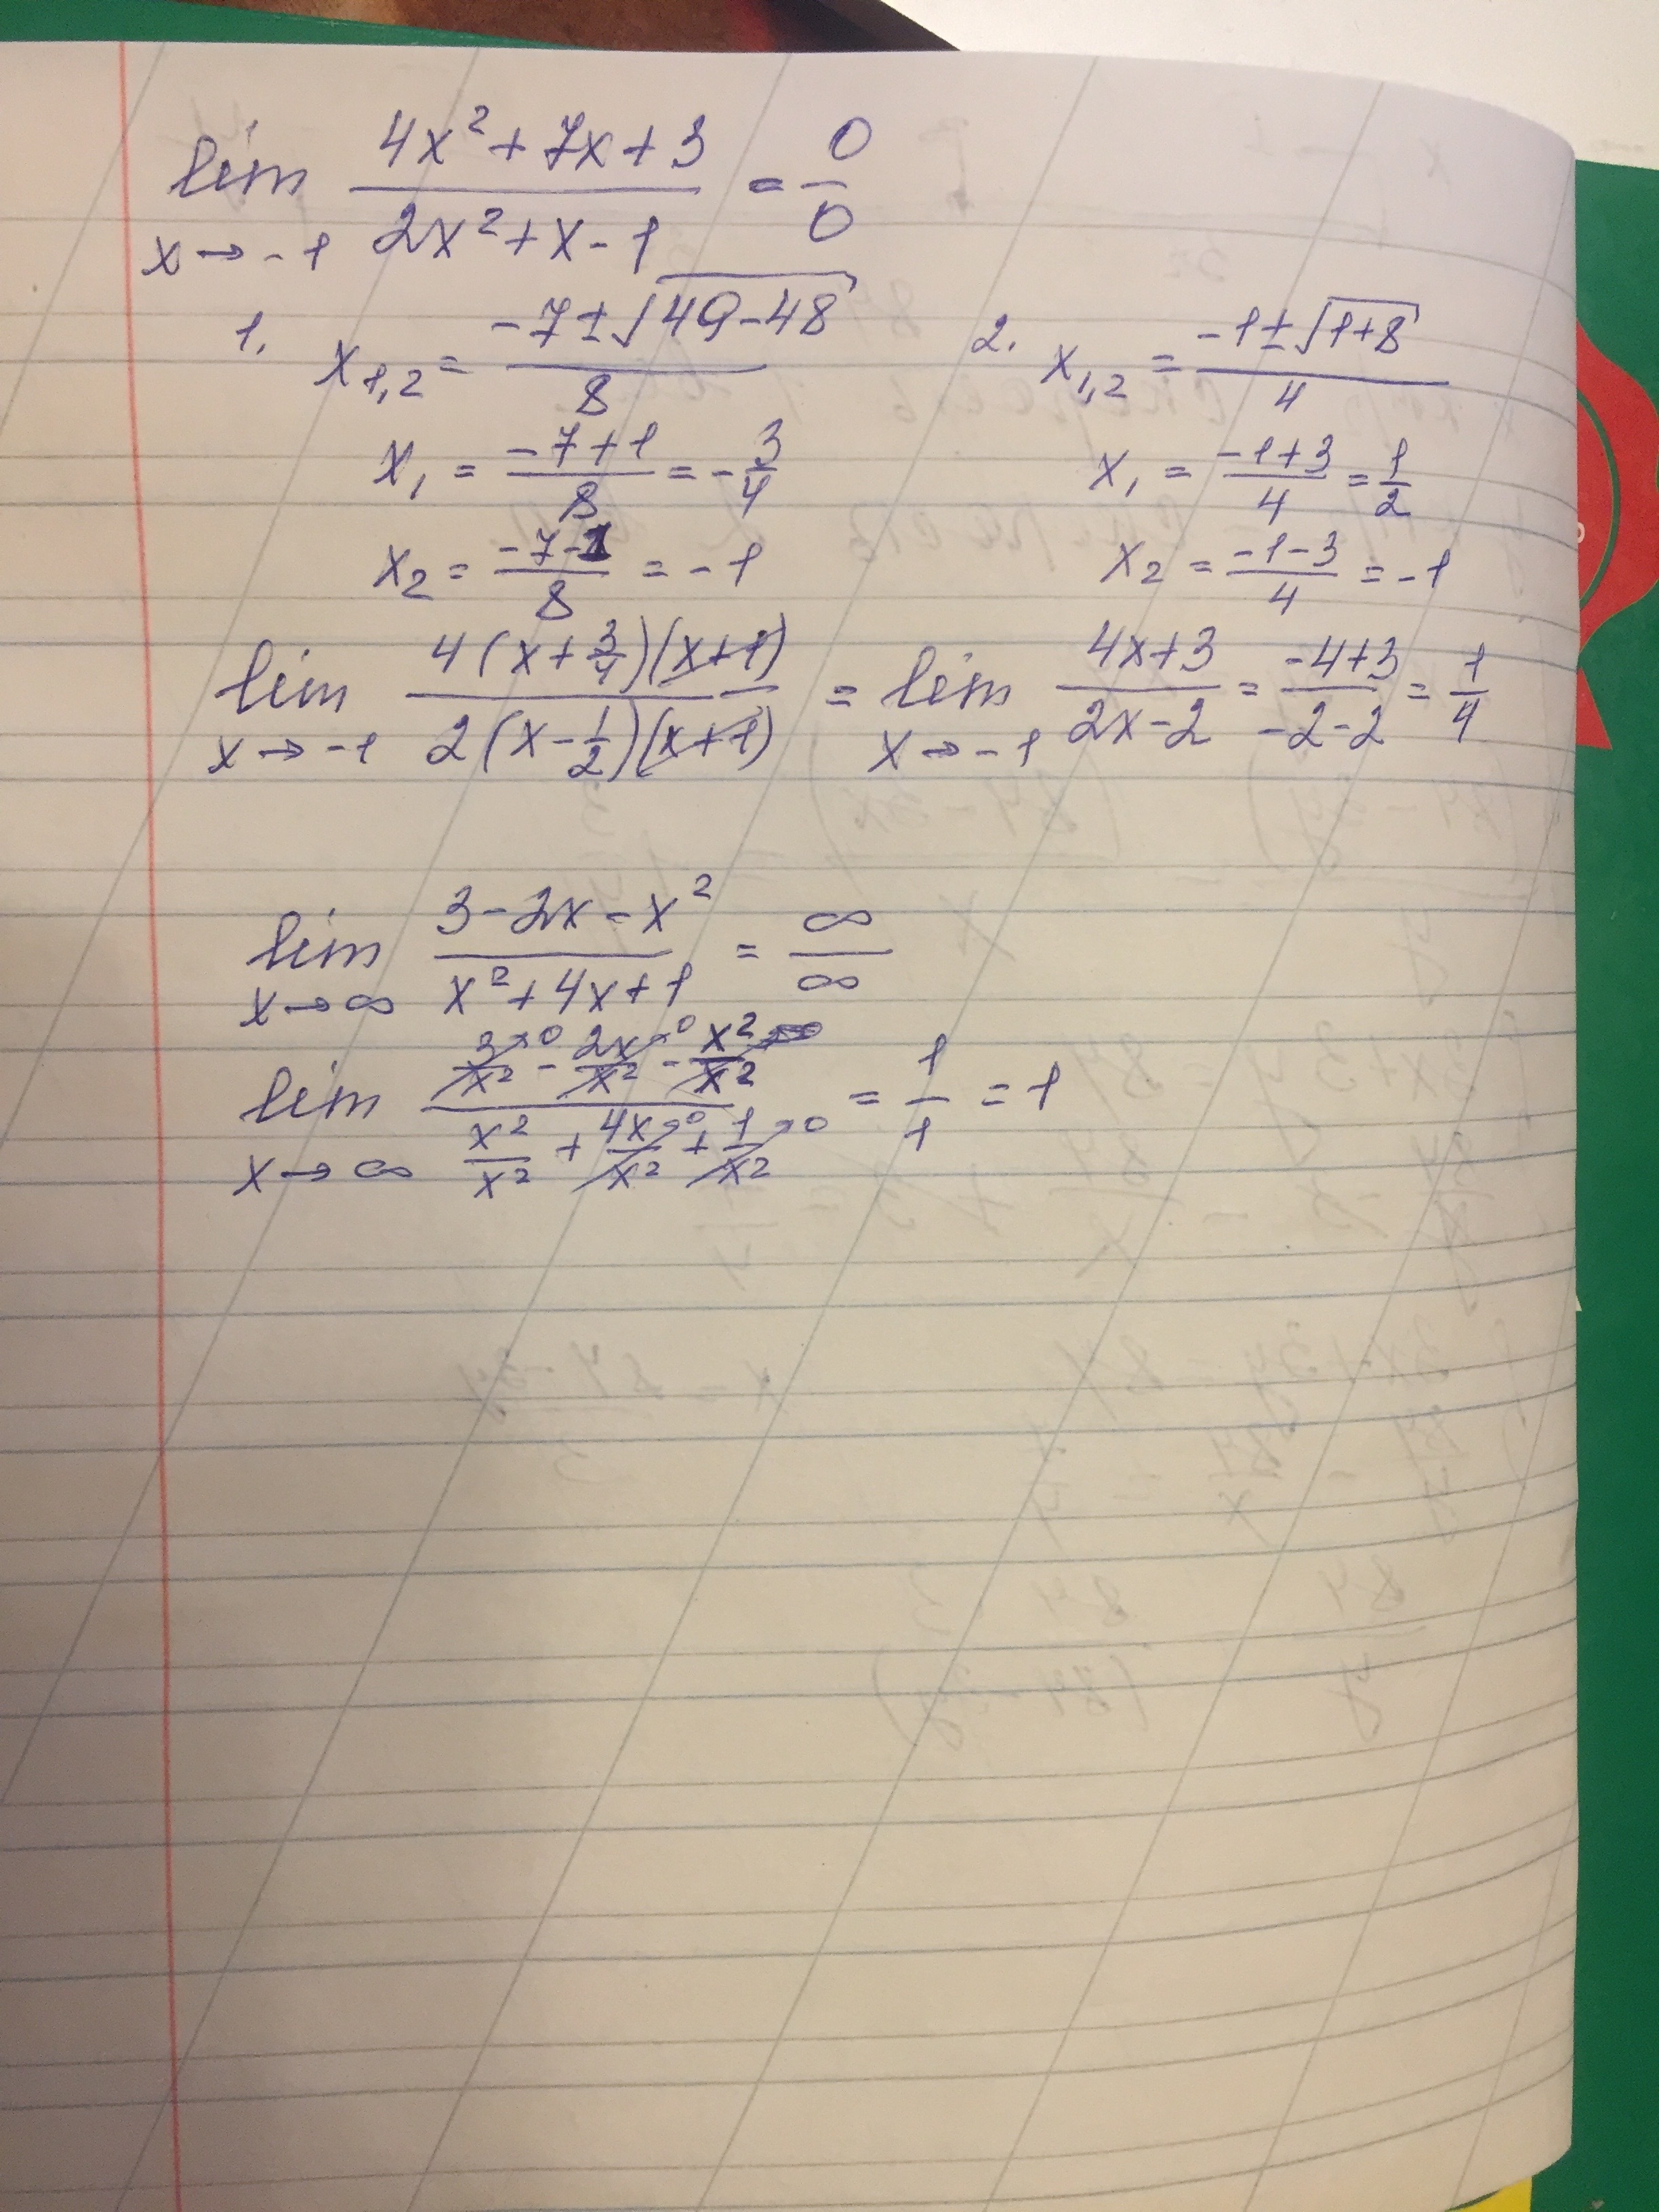 lim x→-1 (4x² + 7x + 3)/(2x² + x - 1) = 0/0
1. x₁,₂ = (-7 ± √(49-48))/8
x₁ = (-7+1)/8 = -3/4
x₂ = (-7-1)/8 = -1
2. x₁,₂ = (-1 ± √(1+8))/4
x₁ = (-1+3)/4 = 1/2
x₂ = (-1-3)/4 = -1
lim x→-1 4(x+3/4)(x+1)/2(x-1/2)(x+1) = lim x→-1 (4x+3)/(2x-2) = (-4+3)/(-2-2) = 1/4
lim x→∞ (3-2x-x²)/(x²+4x+1) = ∞/∞
lim x→∞ (3/x²→0 - 2x/x²→0 - x²/x²)/(x²/x² + 4x/x²→0 + 1/x²→0) = 1/1 = 1